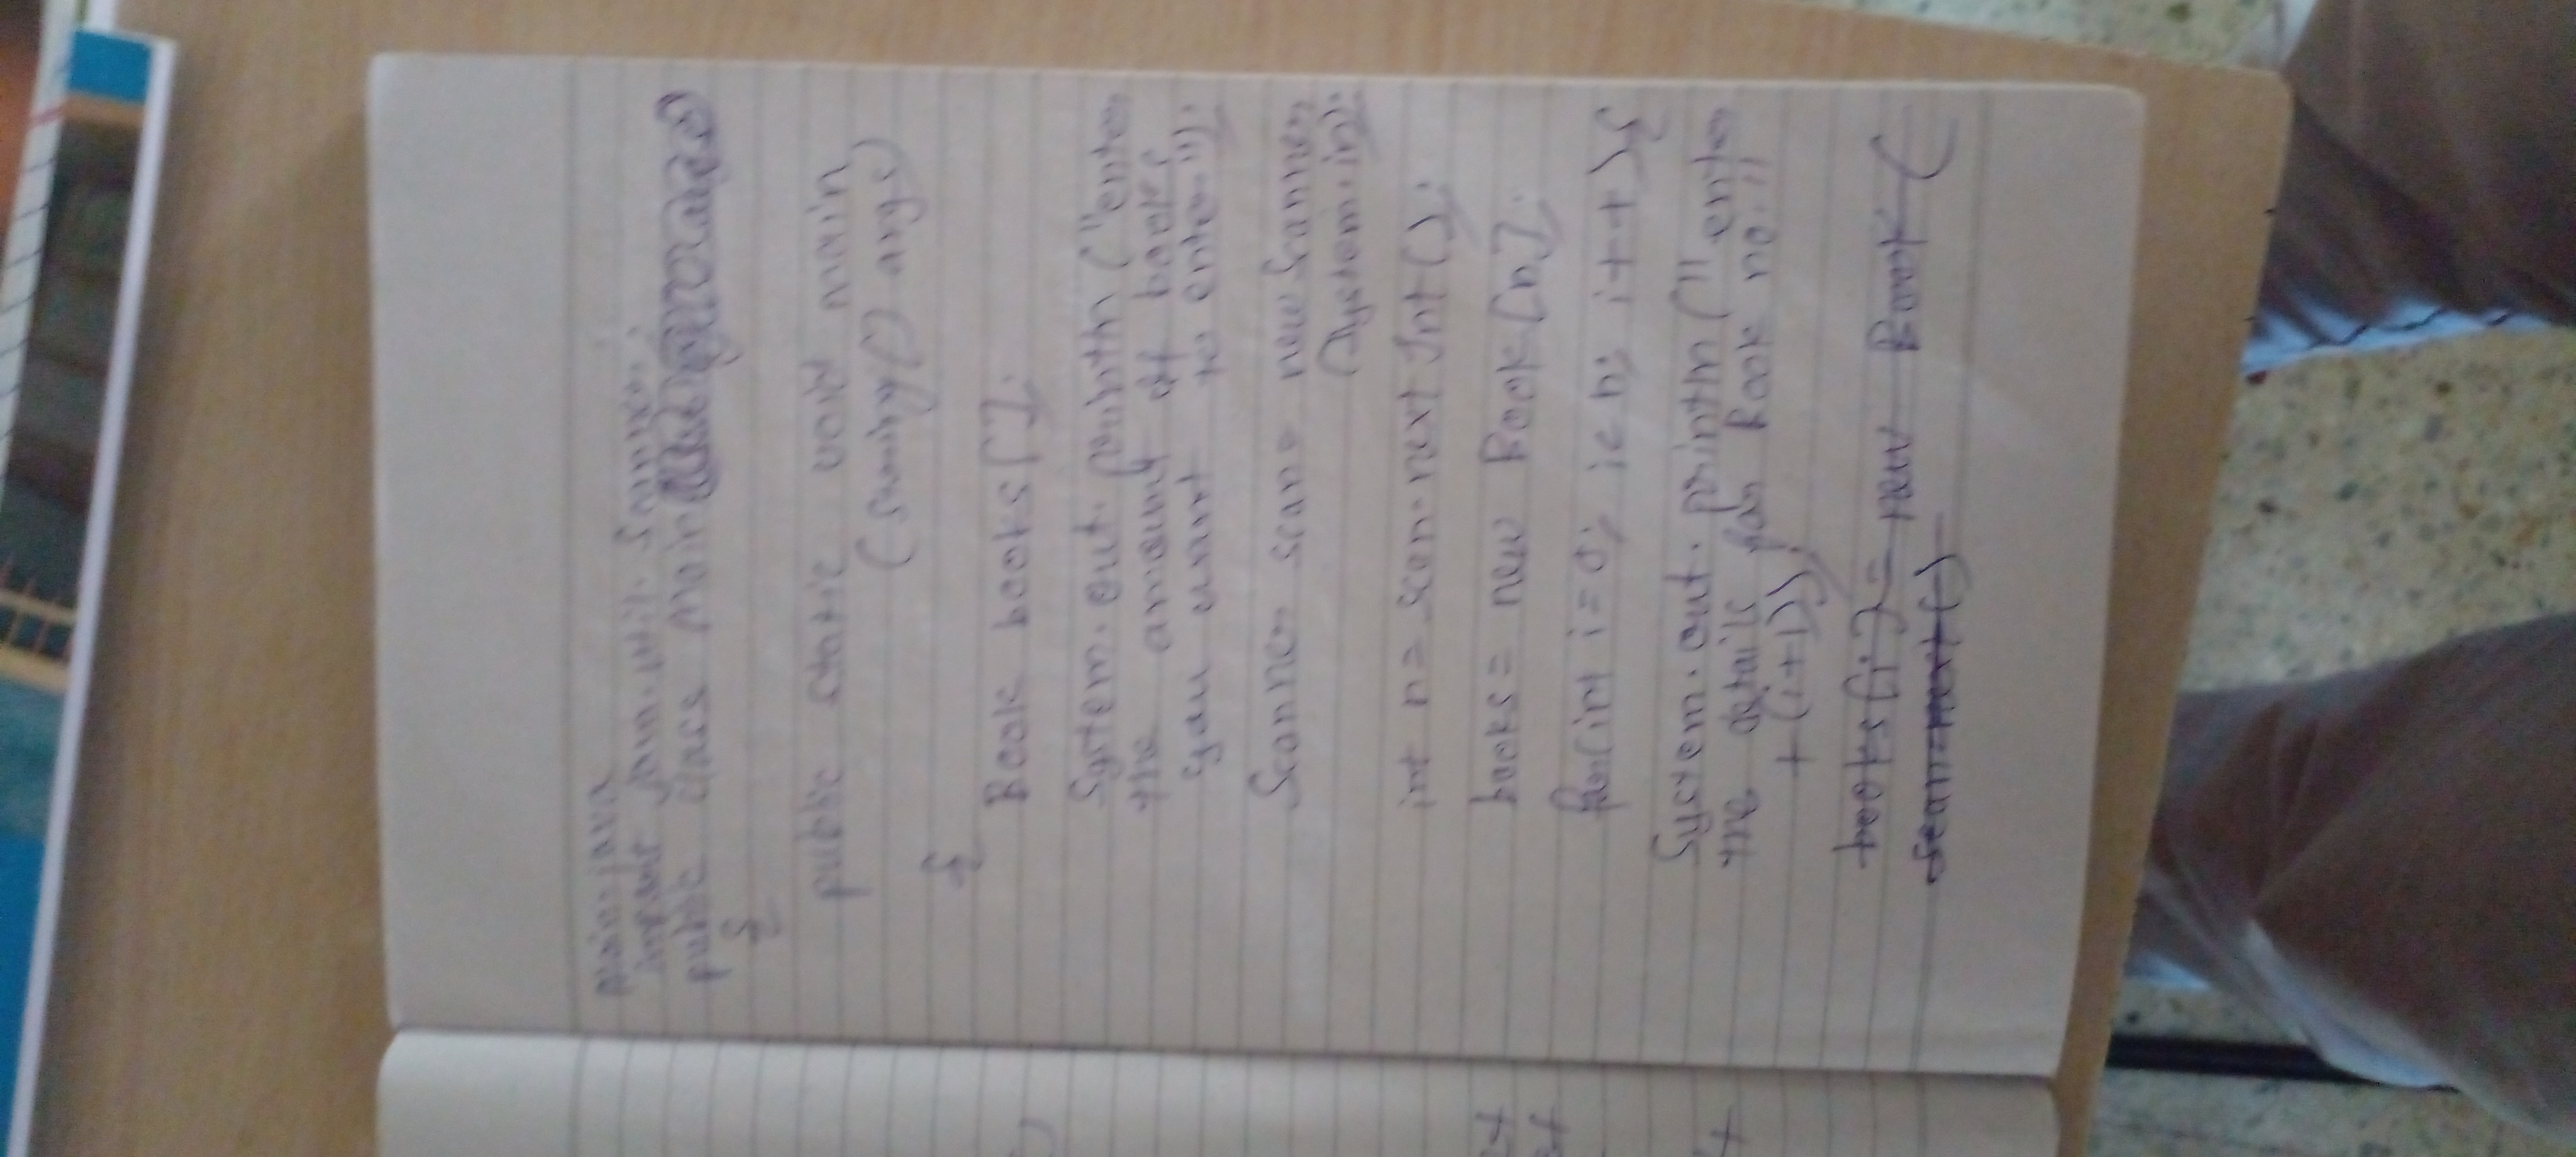 Main.java
import java.util.Scanner;
public class Main
{
public static void main
(String[] args)
{
Book books[];
System.out.println("enter
the amount of books
you want to enter");
Scanner scan = new Scanner
(System.in);
int n = scan.nextInt();
books = new Book[n];
for(int i=0; i<n; i++){
System.out.println("enter
the details for Book no."
+(i+1));
books[i] = new Book(
scan.next()